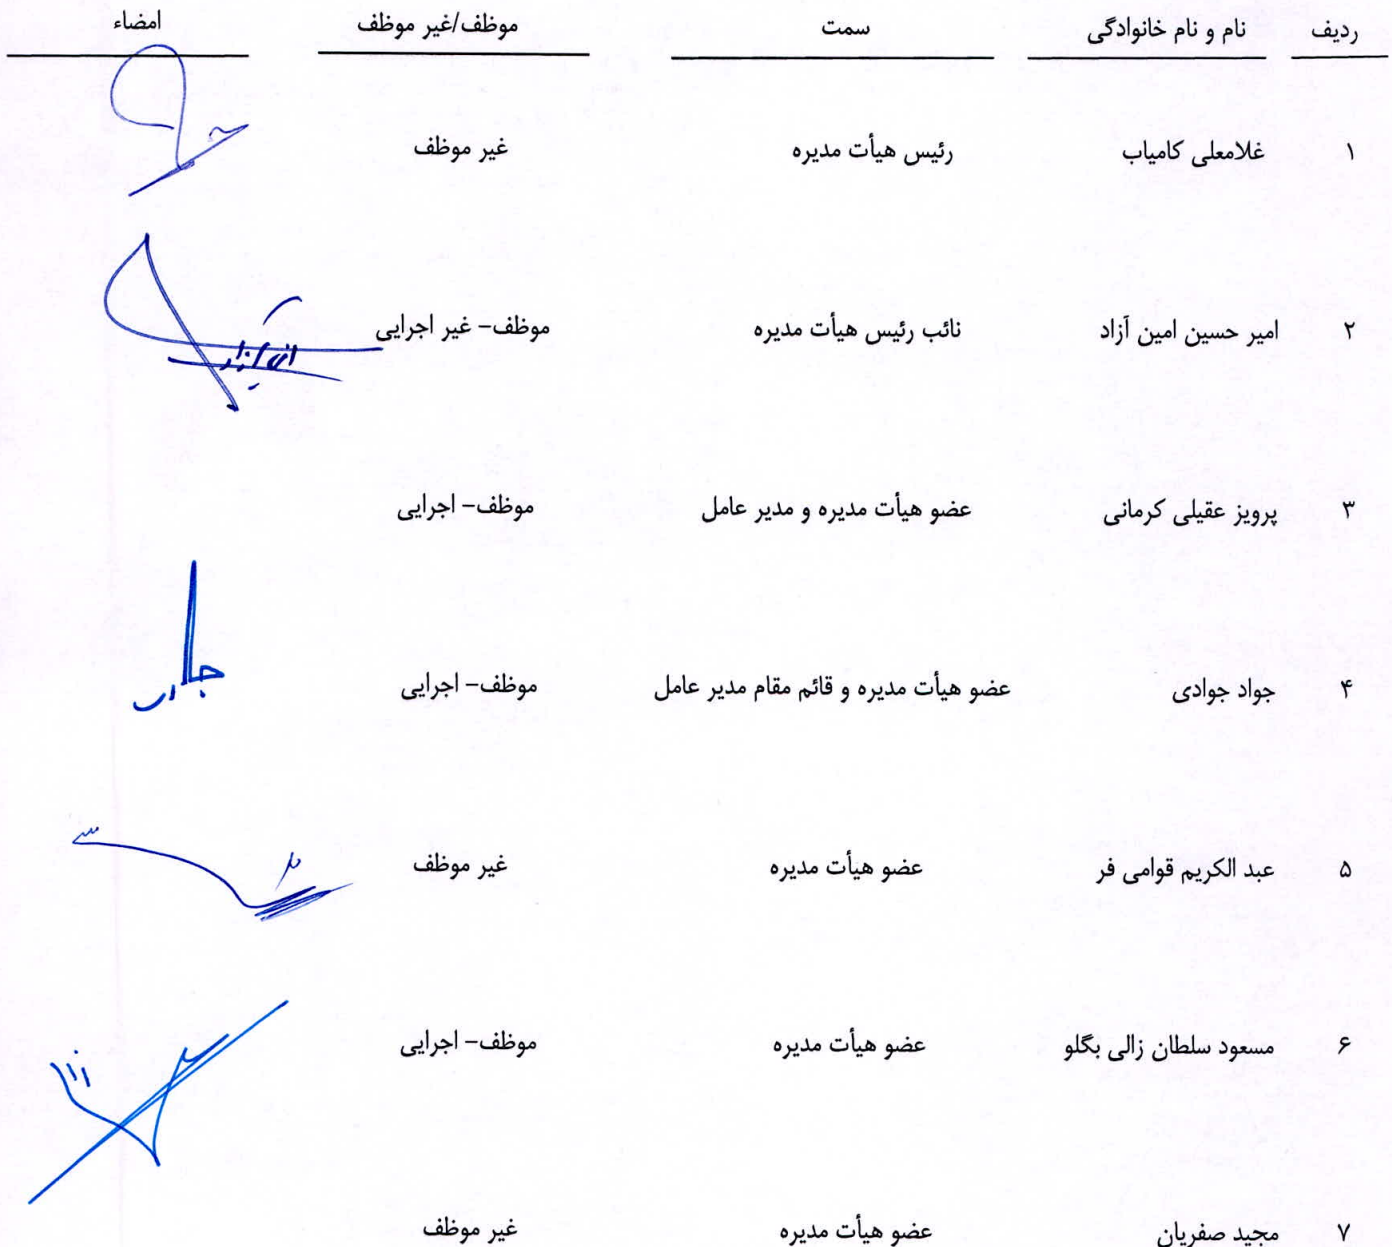 ردیف نام و نام خانوادگی سمت موظف/غیر موظف امضاء
۱ غلامعلی کامیاب رئیس هیأت مدیره غیر موظف
۲ امیر حسین امین آزاد نائب رئیس هیأت مدیره موظف– غیر اجرایی
۳ پرویز عقیلی کرمانی عضو هیأت مدیره و مدیر عامل موظف– اجرایی
۴ جواد جوادی عضو هیأت مدیره و قائم مقام مدیر عامل موظف– اجرایی
۵ عبد الکریم قوامی فر عضو هیأت مدیره غیر موظف
۶ مسعود سلطان زالی بگلو عضو هیأت مدیره موظف– اجرایی
۷ مجید صفریان عضو هیأت مدیره غیر موظف